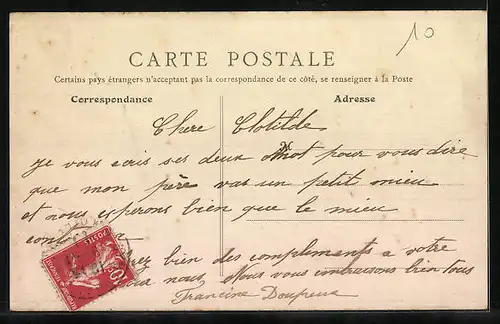 10
CARTE POSTALE
Certains pays étrangers n'acceptant pas la correspondance de ce côté, se renseigner à la Poste
Correspondance
Adresse
Chere Clotilde
Je vous ecris ses deux mot pour vous dire
que mon père vas un petit mieu
et nous esperons bien que le mieu
bien des complements a votre
nous Nous vous bien tous
Francine
POSTES
10